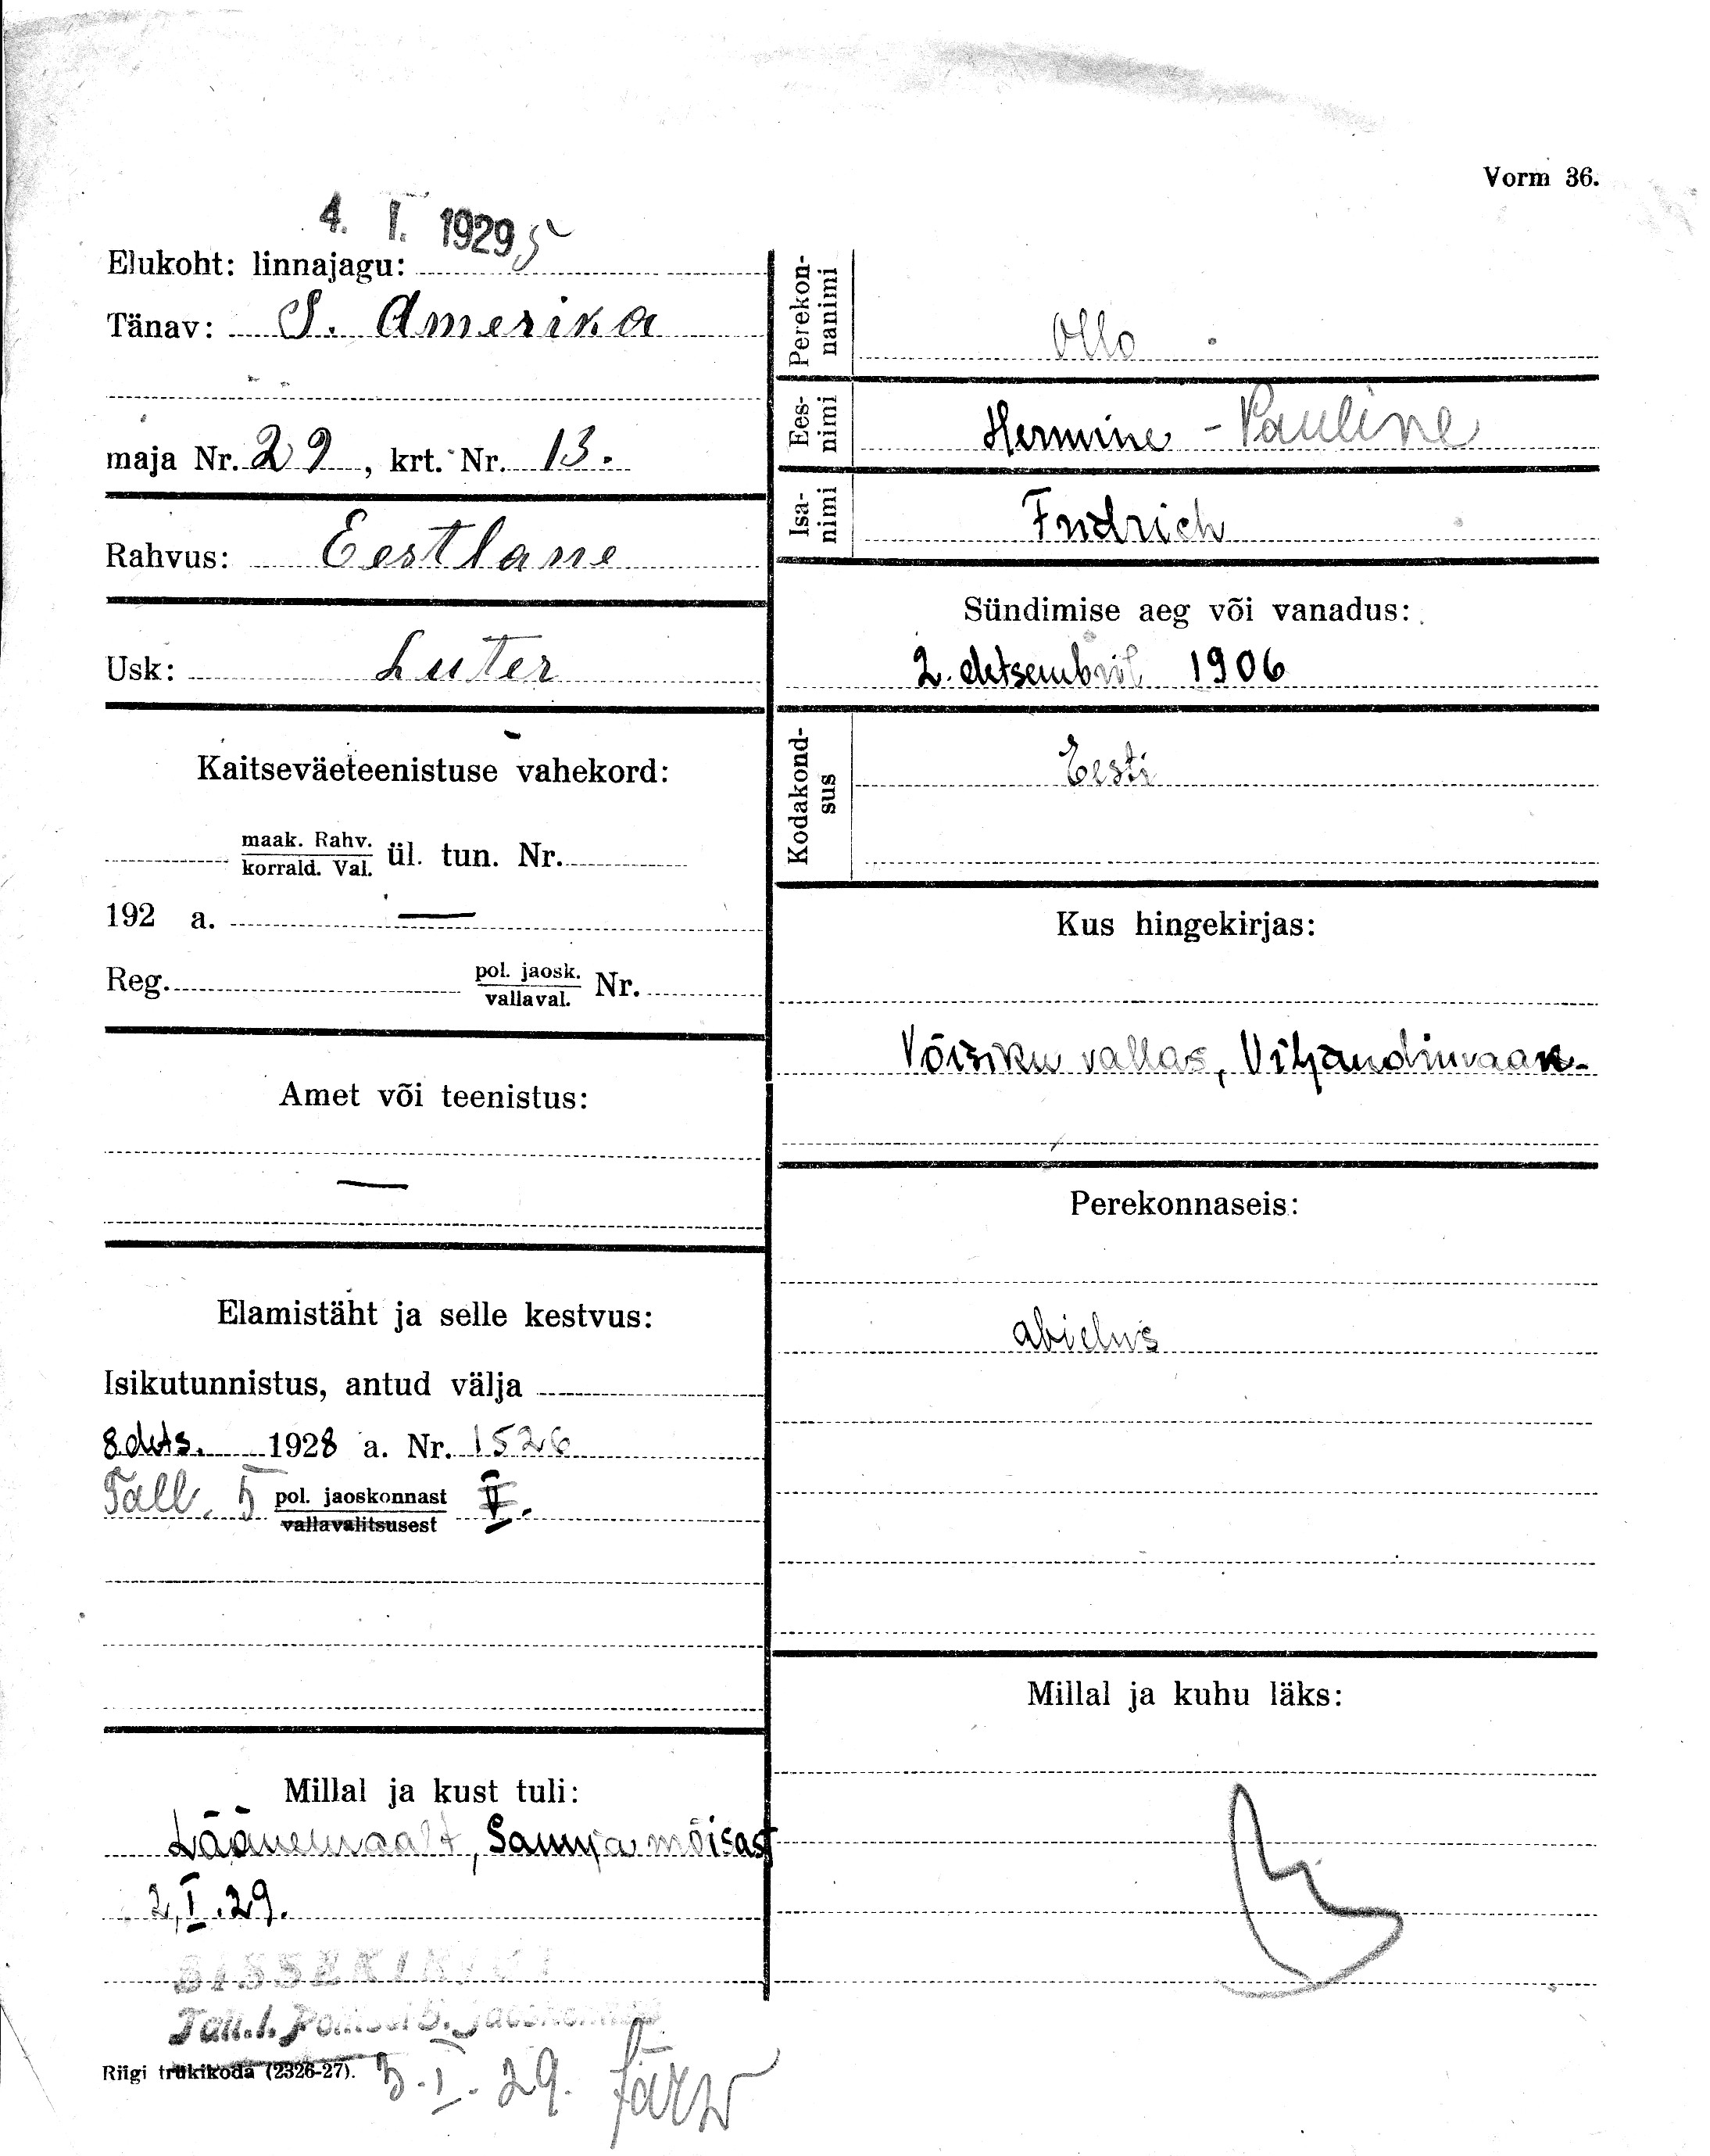 Vorm 36.
4. I. 1929 5
Elukoht: linnajagu:
Tänav: S. Amerika
maja Nr. 29, krt. Nr. 13.
Rahvus: Eestlane
Usk: Luter
Kaitseväeteenistuse vahekord:
maak. Rahv.
korrald. Val. ül. tun. Nr.
192 a. —
Reg. pol. jaosk.
vallaval. Nr.
Amet või teenistus:
—
Elamistäht ja selle kestvus:
Isikutunnistus, antud välja
8 dets. 1928 a. Nr. 1526
Tall. 5 pol. jaoskonnast
vallavalitsusest
Millal ja kust tuli:
Läänemaalt, Saunja mõisast
2. I. 29.
SISSEKIRJUT
Tall. l. Politsei 5. jaoskonnas
Riigi trükikoda (2326-27).
5. I. 29. Järw
Perekon-
nanimi
Ollo
Ees-
nimi
Hermine - Pauline
Isa-
nimi
Fridrich
Sündimise aeg või vanadus:
2. detsembril 1906
Kodakond-
sus
Eesti
Kus hingekirjas:
Võisiku vallas, Viljandimaak.
Perekonnaseis:
abielus
Millal ja kuhu läks: